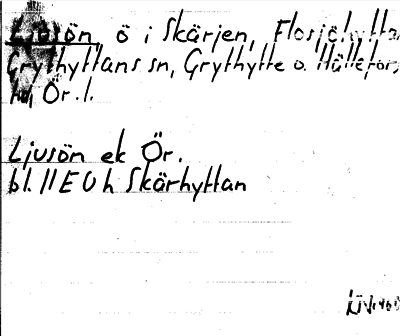 Ljusön, ö i Skärjen, Flosjöhyttan
Grythyttans sn, Grythytte o. Hällefors
hd, Ör. l.
Ljusön ek Ör.
bl. 11 E U h Skärhyttan